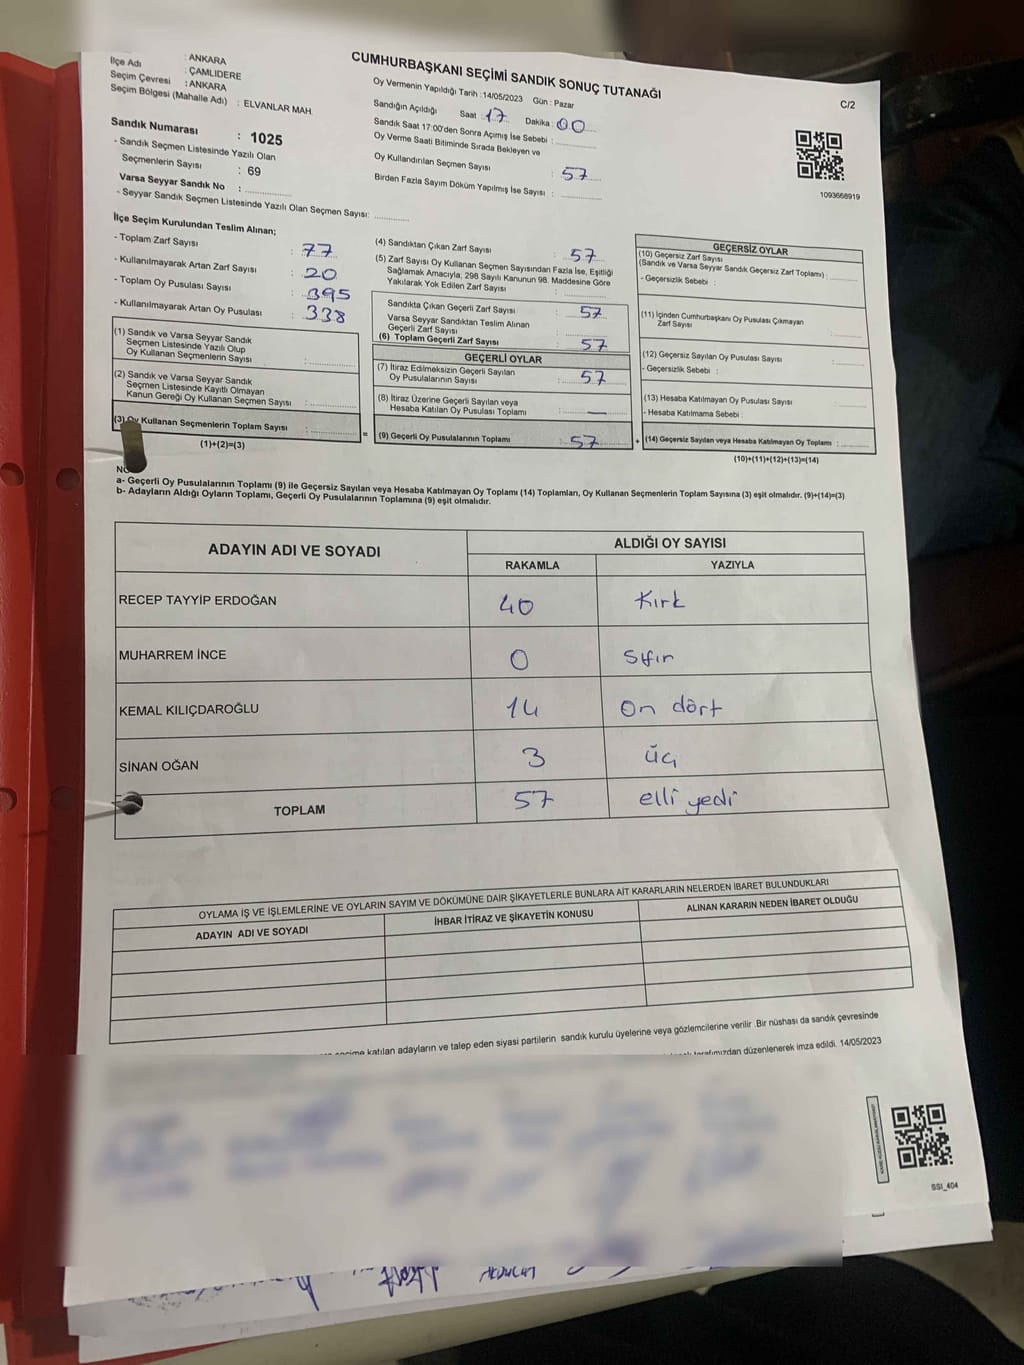 CUMHURBAŞKANI SEÇİMİ SANDIK SONUÇ TUTANAĞI
C/2
: ANKARA
İlçe Adı : ÇAMLIDERE
Seçim Çevresi : ANKARA
Seçim Bölgesi (Mahalle Adı) : ELVANLAR MAH.
Sandık Numarası : 1025
- Sandık Seçmen Listesinde Yazılı Olan
Seçmenlerin Sayısı : 69
Varsa Seyyar Sandık No :
- Seyyar Sandık Seçmen Listesinde Yazılı Olan Seçmen Sayısı:
Oy Vermenin Yapıldığı Tarih :14/05/2023 Gün : Pazar
Sandığın Açıldığı Saat : 17 Dakika : 00
Sandık Saat 17:00'den Sonra Açımış İse Sebebi :
Oy Verme Saati Bitiminde Sırada Bekleyen ve
Oy Kullandırılan Seçmen Sayısı : 57
Birden Fazla Sayım Döküm Yapılmış İse Sayısı :
1093668919
İlçe Seçim Kurulundan Teslim Alınan;
- Toplam Zarf Sayısı : 77
- Kullanılmayarak Artan Zarf Sayısı : 20
- Toplam Oy Pusulası Sayısı : 395
- Kullanılmayarak Artan Oy Pusulası : 338
(1) Sandık ve Varsa Seyyar Sandık
Seçmen Listesinde Yazılı Olup
Oy Kullanan Seçmenlerin Sayısı :
(2) Sandık ve Varsa Seyyar Sandık
Seçmen Listesinde Kayıtlı Olmayan
Kanun Gereği Oy Kullanan Seçmen Sayısı :
(3) Oy Kullanan Seçmenlerin Toplam Sayısı :
(1)+(2)=(3)
(4) Sandıktan Çıkan Zarf Sayısı : 57
(5) Zarf Sayısı Oy Kullanan Seçmen Sayısından Fazla İse, Eşitliği
Sağlamak Amacıyla; 298 Sayılı Kanunun 98. Maddesine Göre
Yakılarak Yok Edilen Zarf Sayısı :
Sandıkta Çıkan Geçerli Zarf Sayısı : 57
Varsa Seyyar Sandıktan Teslim Alınan
Geçerli Zarf Sayısı :
(6) Toplam Geçerli Zarf Sayısı : 57
GEÇERLİ OYLAR
(7) İtiraz Edilmeksizin Geçerli Sayılan
Oy Pusulalarının Sayısı : 57
(8) İtiraz Üzerine Geçerli Sayılan veya
Hesaba Katılan Oy Pusulası Toplamı : —
= (9) Geçerli Oy Pusulalarının Toplamı : 57
GEÇERSİZ OYLAR
(10) Geçersiz Zarf Sayısı
(Sandık ve Varsa Seyyar Sandık Geçersiz Zarf Toplamı) :
- Geçersizlik Sebebi :
(11) İçinden Cumhurbaşkanı Oy Pusulası Çıkmayan
Zarf Sayısı :
(12) Geçersiz Sayılan Oy Pusulası Sayısı :
- Geçersizlik Sebebi :
(13) Hesaba Katılmayan Oy Pusulası Sayısı :
- Hesaba Katılmama Sebebi :
+ (14) Geçersiz Sayılan veya Hesaba Katılmayan Oy Toplamı :
(10)+(11)+(12)+(13)=(14)
a- Geçerli Oy Pusulalarının Toplamı (9) ile Geçersiz Sayılan veya Hesaba Katılmayan Oy Toplamı (14) Toplamları, Oy Kullanan Seçmenlerin Toplam Sayısına (3) eşit olmalıdır. (9)+(14)=(3)
b- Adayların Aldığı Oyların Toplamı, Geçerli Oy Pusulalarının Toplamına (9) eşit olmalıdır.
ADAYIN ADI VE SOYADI ALDIĞI OY SAYISI
RAKAMLA YAZIYLA
RECEP TAYYİP ERDOĞAN 40 Kırk
MUHARREM İNCE 0 Sıfır
KEMAL KILIÇDAROĞLU 14 On dört
SİNAN OĞAN 3 üç
TOPLAM 57 elli yedi
OYLAMA İŞ VE İŞLEMLERİNE VE OYLARIN SAYIM VE DÖKÜMÜNE DAİR ŞİKAYETLERLE BUNLARA AİT KARARLARIN NELERDEN İBARET BULUNDUKLARI
ADAYIN ADI VE SOYADI İHBAR İTİRAZ VE ŞİKAYETİN KONUSU ALINAN KARARIN NEDEN İBARET OLDUĞU
katılan adayların ve talep eden siyasi partilerin sandık kurulu üyelerine veya gözlemcilerine verilir .Bir nüshası da sandık çevresinde
tarafımızdan düzenlenerek imza edildi. 14/05/2023
SSI_404